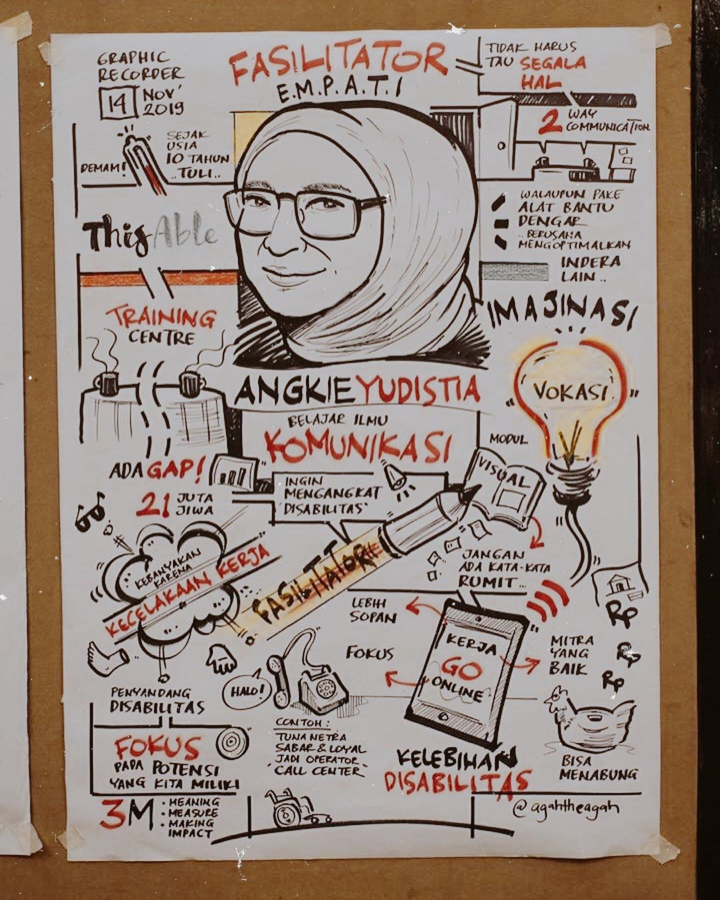 GRAPHIC
RECORDER
14 NOV'
2019
FASILITATOR
E.M.P.A.T.I
TIDAK HARUS
TAU SEGALA
HAL
2 WAY
COMMUNICATION
DEMAM!
SEJAK
USIA
10 TAHUN
..TULI..
WALAUPUN PAKE
ALAT BANTU
DENGAR
..BERUSAHA
MENGOPTIMALKAN
INDERA
LAIN..
ThisAble
TRAINING
CENTRE
IMAJINASI
VOKASI
ANGKIE YUDISTIA
BELAJAR ILMU
KOMUNIKASI
MODUL
VISUAL
ADA GAP!
21 JUTA
JIWA
INGIN
MENGANGKAT
"DISABILITAS"
FASILITATOR
KEBANYAKAN
KARENA
KECELAKAAN KERJA
JANGAN
ADA KATA-KATA
RUMIT...
LEBIH
SOPAN
FOKUS
KERJA
GO
ONLINE
MITRA
YANG
BAIK
Rp
Rp
Rp
BISA
MENABUNG
HALO!
PENYANDANG
DISABILITAS
CONTOH:
TUNA NETRA
SABAR & LOYAL
"JADI OPERATOR
CALL CENTER"
KELEBIHAN
DISABILITAS
FOKUS
PADA POTENSI
YANG KITA MILIKI
3M
• MEANING
• MEASURE
• MAKING
IMPACT
@agahtheagah